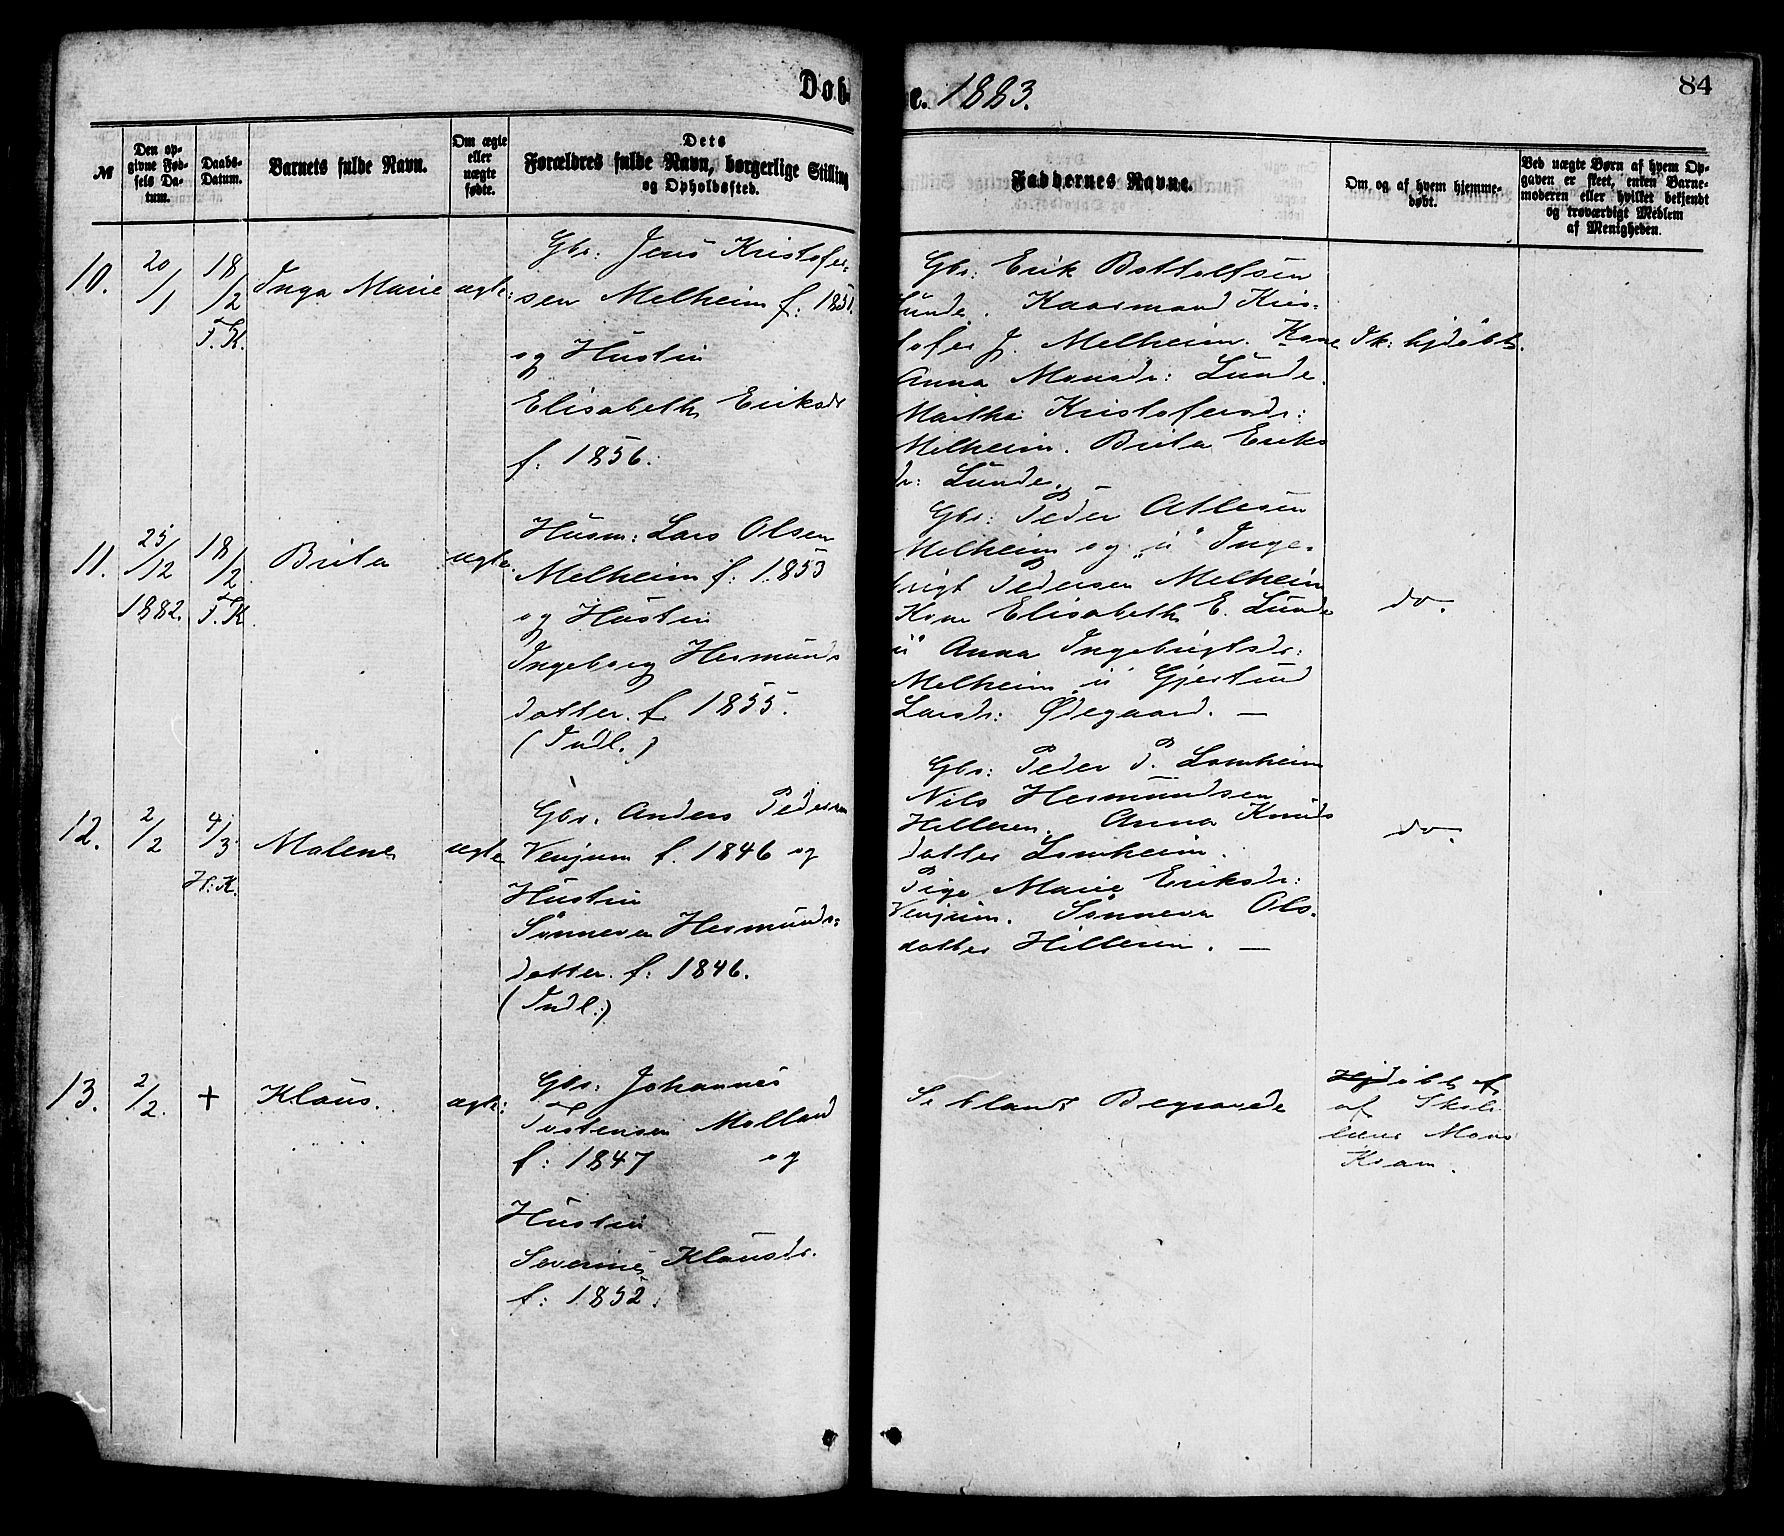 Døb
e. 1883.
84
№
Den op-
givne Fød-
sels Da-
tum.
Daabs-
Datum.
Barnets fulde Navn.
Om ægte
eller
uægte
fødte.
Dets
Forældres fulde Navn, borgerlige Stilling
og Opholdssted.
Faddernes Navne.
Om og af hvem hjemme-
døbt.
Ved uægte Børn af hvem Op-
gaven er skeet, enten Barne-
moderen eller hvilket bekjendt
og troværdigt Medlem
af Menigheden.
10.
20/1
18/2
F. K.
Inga Marie
ægte:
Gbr: Jens Kristofer-
sen Melheim f: 1851.
og Hustru
Elisabeth Eriksdr
f: 1856.
Gbr: Erik Bottolfsen
Lunde. Kaarmand Kris-
tofer J. Melheim. Kone
Anna Monsdr: Lunde.
Martha Kristofersdr:
Melheim. Brita Eriks
dr: Lunde.
Ik: hjdøbt.
11.
25/12
1882.
18/2
F. K.
Brita
ægte.
Husm: Lars Olsen
Melheim f: 1853
og Hustru
Ingeborg Hermunds
datter. f. 1855.
(Indl.)
Gbr: Peder Atlesen
Melheim og "u" Inge-
brigt Pedersen Melheim
Kone Elisabeth E. Lunde
u" Anna Ingebrigtsdr:
Melheim "u" Gjertrud
Larsdr: Ødegaard. —
do.
12.
2/2
4/3
H: K.
Malene
ægte
Gbr. Anders Pedersen
Venjum f. 1846 og
Hustru
Synneva Hermunds:
datter. f: 1846.
(Indl:)
Gbr: Peder P. Lomheim
Nils Hermundsen
Hilleren. Anna Knuds
datter Lomheim.
Pige Marie Eriksdr:
Venjum. Synneva Ols-
datter Hilleren. —
do.
13.
2/2.
+
Klaus.
ægte:
Gbr: Johannes
Tostensen Molland
f: 1847 og
Hustru
Severine Klausdr.
f: 1852.
Se blandt Begravede
Hjdøbt af
af Skole
lærer Mons
Kvam.